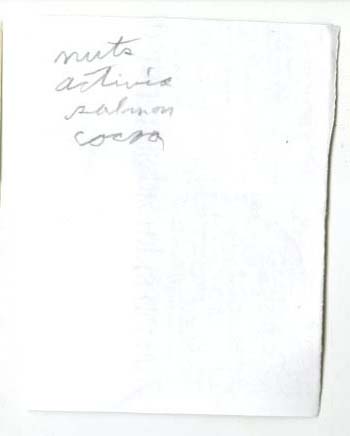 nuts
activia
salmon
cocoa